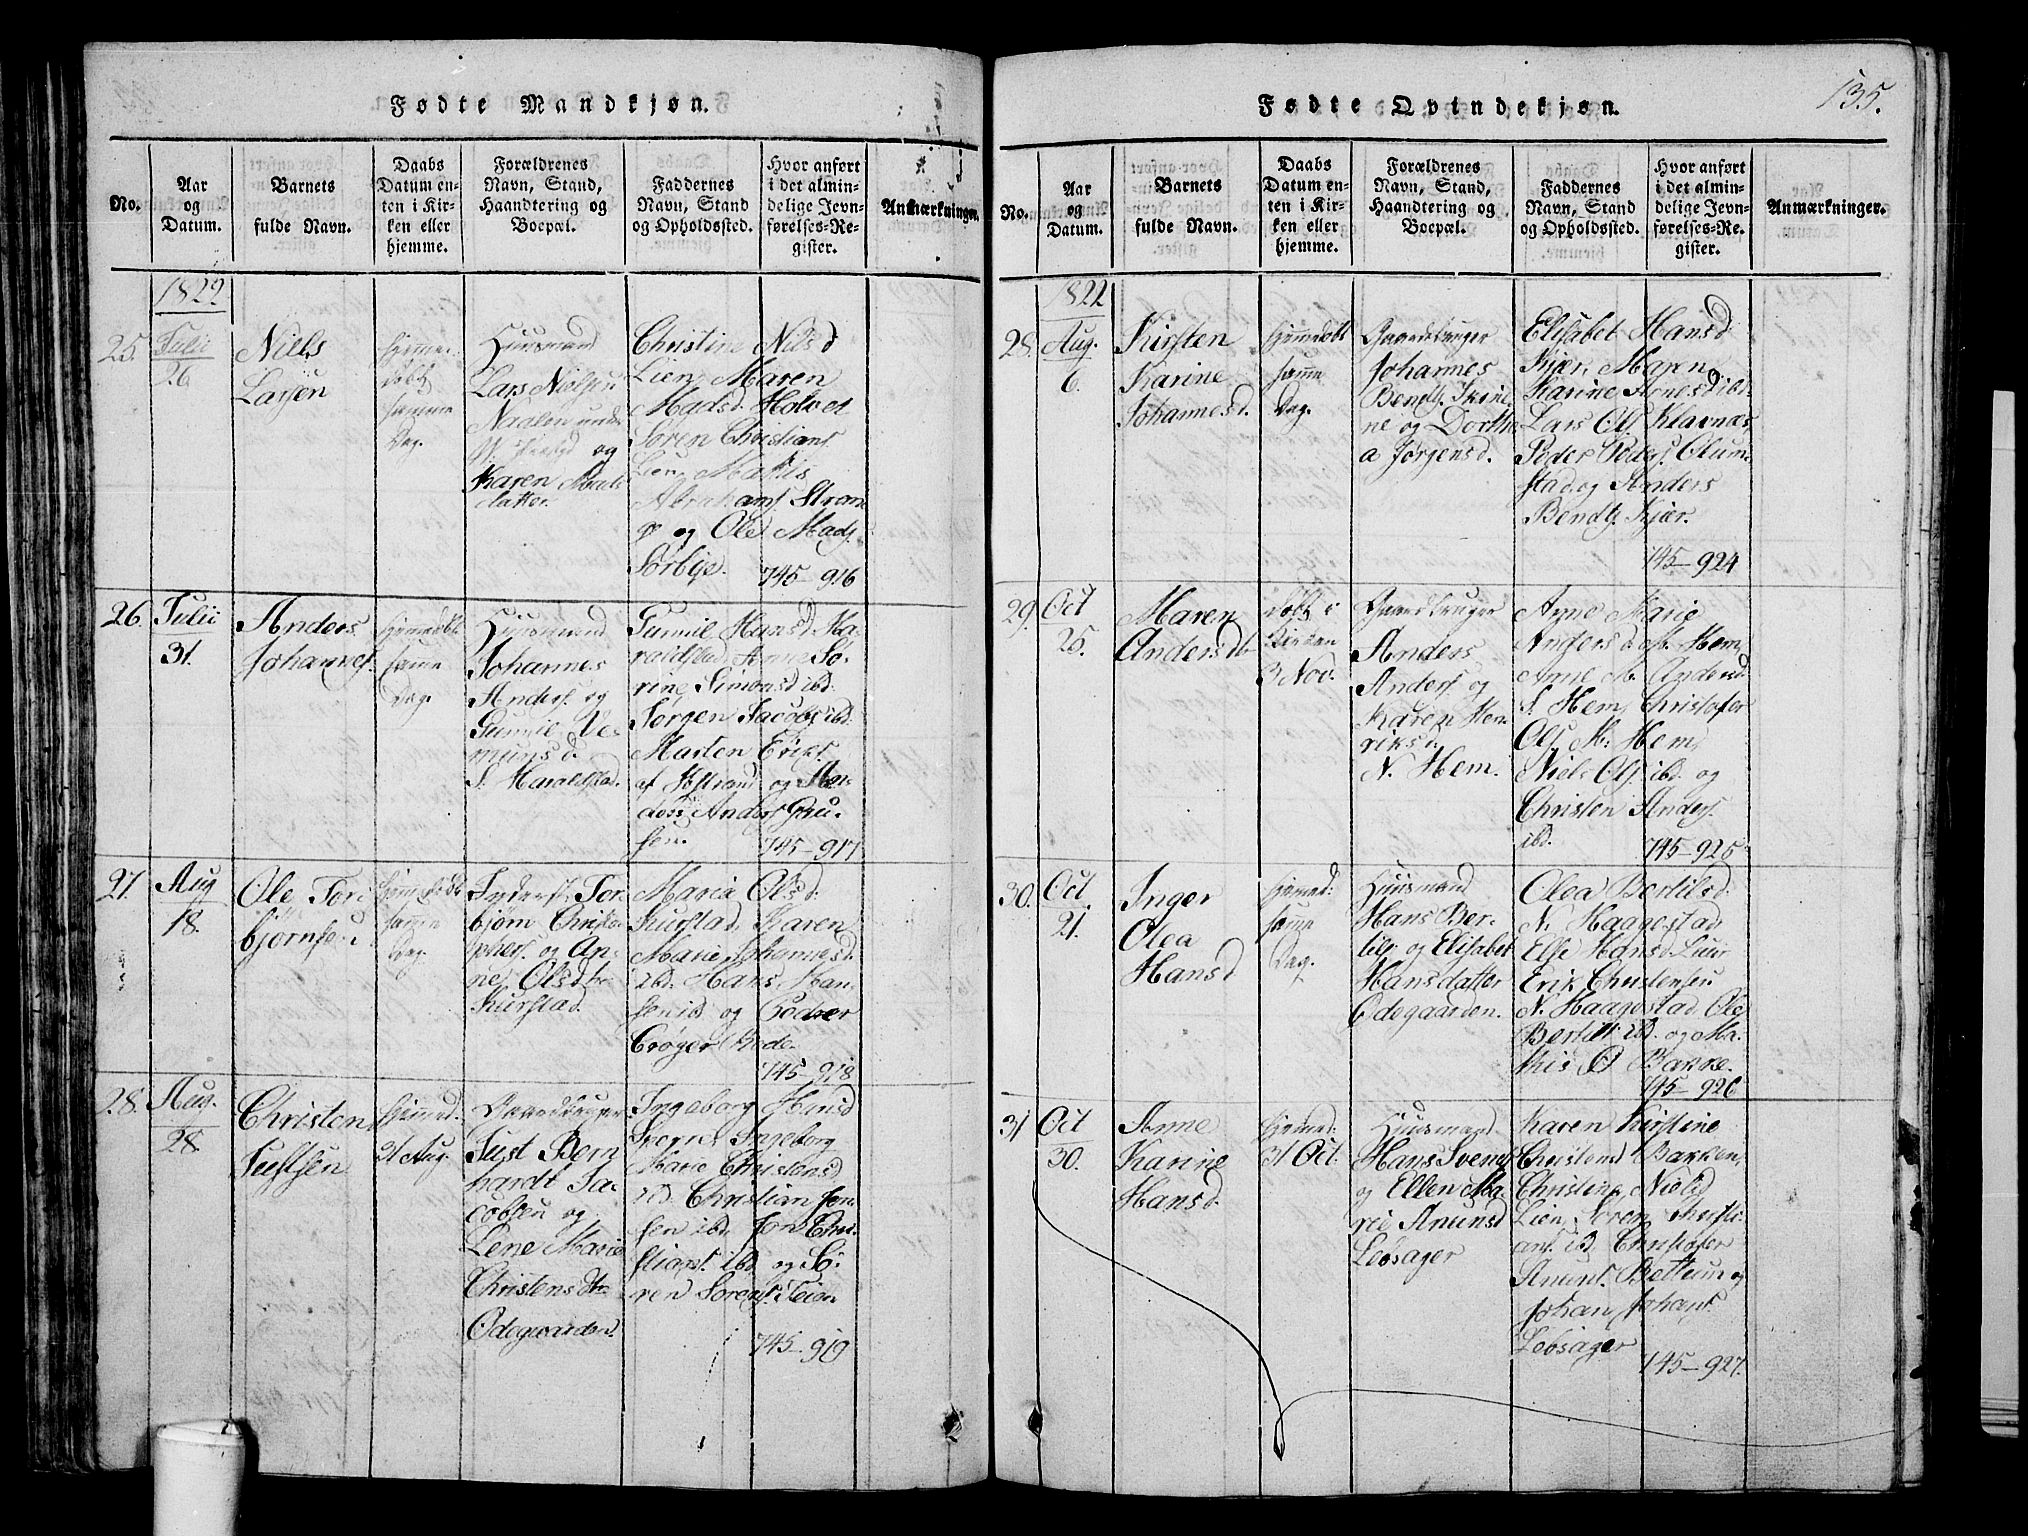 Fødte Mandkjøn.
No.
Aar
og
Datum.
Barnets
fulde Navn.
Daabs
Datum en-
ten i Kir-
ken eller
hjemme.
Forældrenes
Navn, Stand,
Haandtering og
Boepæl.
Faddernes
Navn, Stand
og Opholdssted.
Hvor anført
i det almin-
delige Jevn-
førelses-Re-
gister.
Anmærkninger.
1822
25.
Julii
26
Niels
Larsen
hjemme
døbt
samme
Dag.
Huusmand
Lars Nielsen
og
Karen Mads
datter.
Christine Nilsd
Lien, Maren
Madsd. Holvet
Søren Christians
Lien, Mathis
Abrahams Strom
og Ole Mads.
Sørbye.
745-916
26.
Julii
31.
Anders
Johannes.
hjemedøbt
same
Dag.
Huusmand
Johannes
Anders. og
Gunnil Ve-
munsd.
S. Haraldstad.
Gunnil Hansd Ha-
raldstad, Anne Sø-
rine Simonsd ibd.
Jørgen Jacobs. ibd.
Marten Eriks.
og An-
ders Anders
745-917
27.
Aug
18.
Ole Tor
bjørnsen
hjemedøbt
samme
Dag.
Tor-
bjørn Christo-
phers. og An-
ne Olsdtr
Kurstad.
Maria Olsd.
Kurstad, Karen
Marie Johannesd.
ibd. Hans Han-
sen ibd og Peder
745-918
28.
Aug.
28.
Christen
Justsen
hjemed.
21 Aug.
Gaardbruger
Just Bern
hardt Ja-
cobsen og
Lene Marie
Christensdtr
Ødegaarden.
Ingeborg Hansd
Ingeborg
Marie Christensd
ibd. Christian Jen-
sen ibd. Jen Chri-
stians. ibd og Sö-
ren Sorens.
745-919
135.
Fødte Qvindekjøn.
No.
Aar
og
Datum.
Barnets
fulde Navn.
Daabs
Datum en-
ten i Kir-
ken eller
hjemme.
Forældrenes
Navn, Stand,
Haandtering og
Boepæl.
Faddernes
Navn, Stand
og Opholdssted.
Hvor anført
i det almin-
delige Jevn-
førelses-Re-
gister.
Anmærkninger.
1822
28.
Aug.
6.
Kirsten
Karine
Johannesd.
hjemedøbt
samme
Dag.
Gaardbruger
Johannes
Bendts.
ne og Dorthe
a Jørgensd.
Elisabet Hansd
Kjær, Maren
Karine Arnesd ibd.
Lars Ols. Klavnæs,
Peder Peders. Olum-
stad og Anders
Bendts. Kjær.
745-924
29.
Oct
25.
Maren
Andersdtr
døbt i
Kirken
3 Nov.
Gaardbruger
Anders
Anders. og
Karen Hen-
riksd.
N. Hem.
Anne Marie
Andersd. M. Hem,
Anne M. Andersd.
S. Hem, Christofer
Ols. M. Hem,
Niels Ols. ibd. og
Christen Anders.
ibd.
745-925
30.
Oct
21.
Inger
Olea
Hansd
hjemed:
samme
Dag.
Huusmand
Hans Ber-
tils. og Elisabet
Hansdatter
Ødegaarden.
Olea Bertilsd.
N. Haagestad
Else Hansd. Lien
Erik Christensen
N. Haagestad, Ole
Bertils. ibd. og Ma-
this O Bakke.
745-926
31
Oct
30.
Anne
Karine
Hansd.
hjemed:
31 Oct.
Huusmand
Hans Svends.
og Ellen Ma-
rie Anunsd
Løvsager
Karen Kirstine
Christensd Bakken,
Christine Nielsd
Lien, Søren Christi-
ans. ibd. Christofer
Anuns. Bettum og
Johan Johans.
Løvsager
745-927.